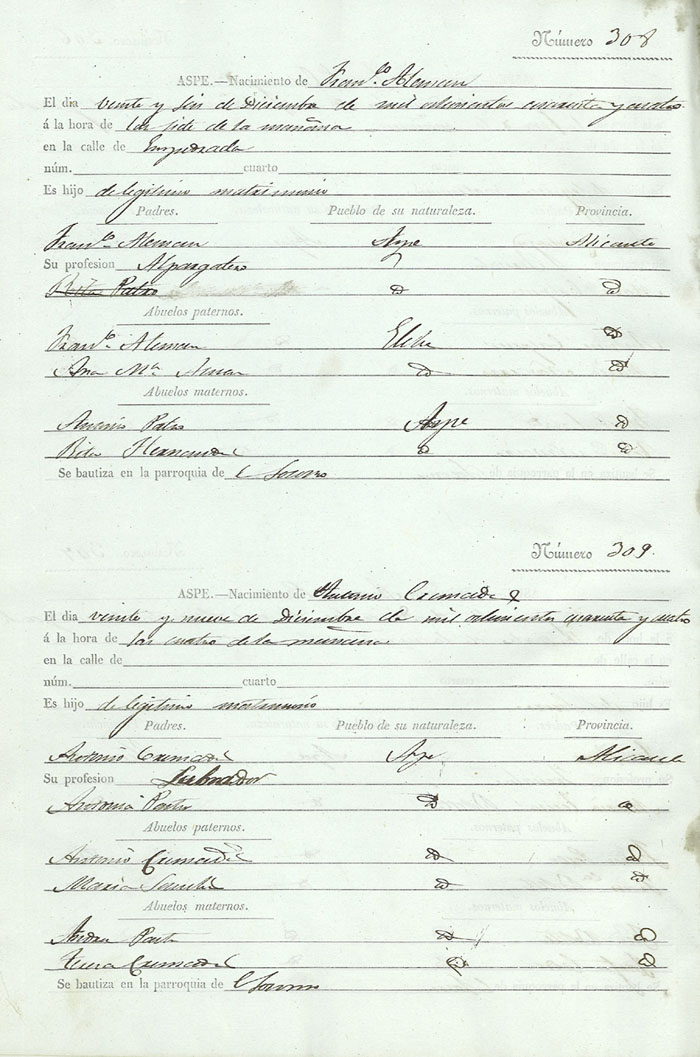 Número 308
ASPE.—Nacimiento de Franco. Aleman
El dia veinte y seis de Diciembre de mil ochocientos cuarenta y cuatro
á la hora de las siete de la mañana
en la calle de Empedrada
núm. cuarto
Es hijo de legitimo matrimonio
Padres. Pueblo de su naturaleza. Provincia.
Franco. Aleman Aspe Alicante
Su profesion Alpargatero
Rita Patro D D
Abuelos paternos.
Franco. Aleman Elche D
Ana Ma. D D
Abuelos maternos.
Antonio Patro Aspe D
Rita Hernandez D D
Se bautiza en la parroquia de el Socorro
Número 309.
ASPE.—Nacimiento de Antonio Cremades
El dia veinte y nueve de Diciembre de mil ochocientos cuarenta y cuatro
á la hora de las cuatro de la mañana
en la calle de
núm. cuarto
Es hijo de legitimo matrimonio
Padres. Pueblo de su naturaleza. Provincia.
Antonio Cremades Aspe Alicante
Su profesion Labrador
Antonia D D
Abuelos paternos.
Antonio Cremades D D
Maria Sanchez D D
Abuelos maternos.
Andres D D
Teresa Cremades D D
Se bautiza en la parroquia de el Socorro